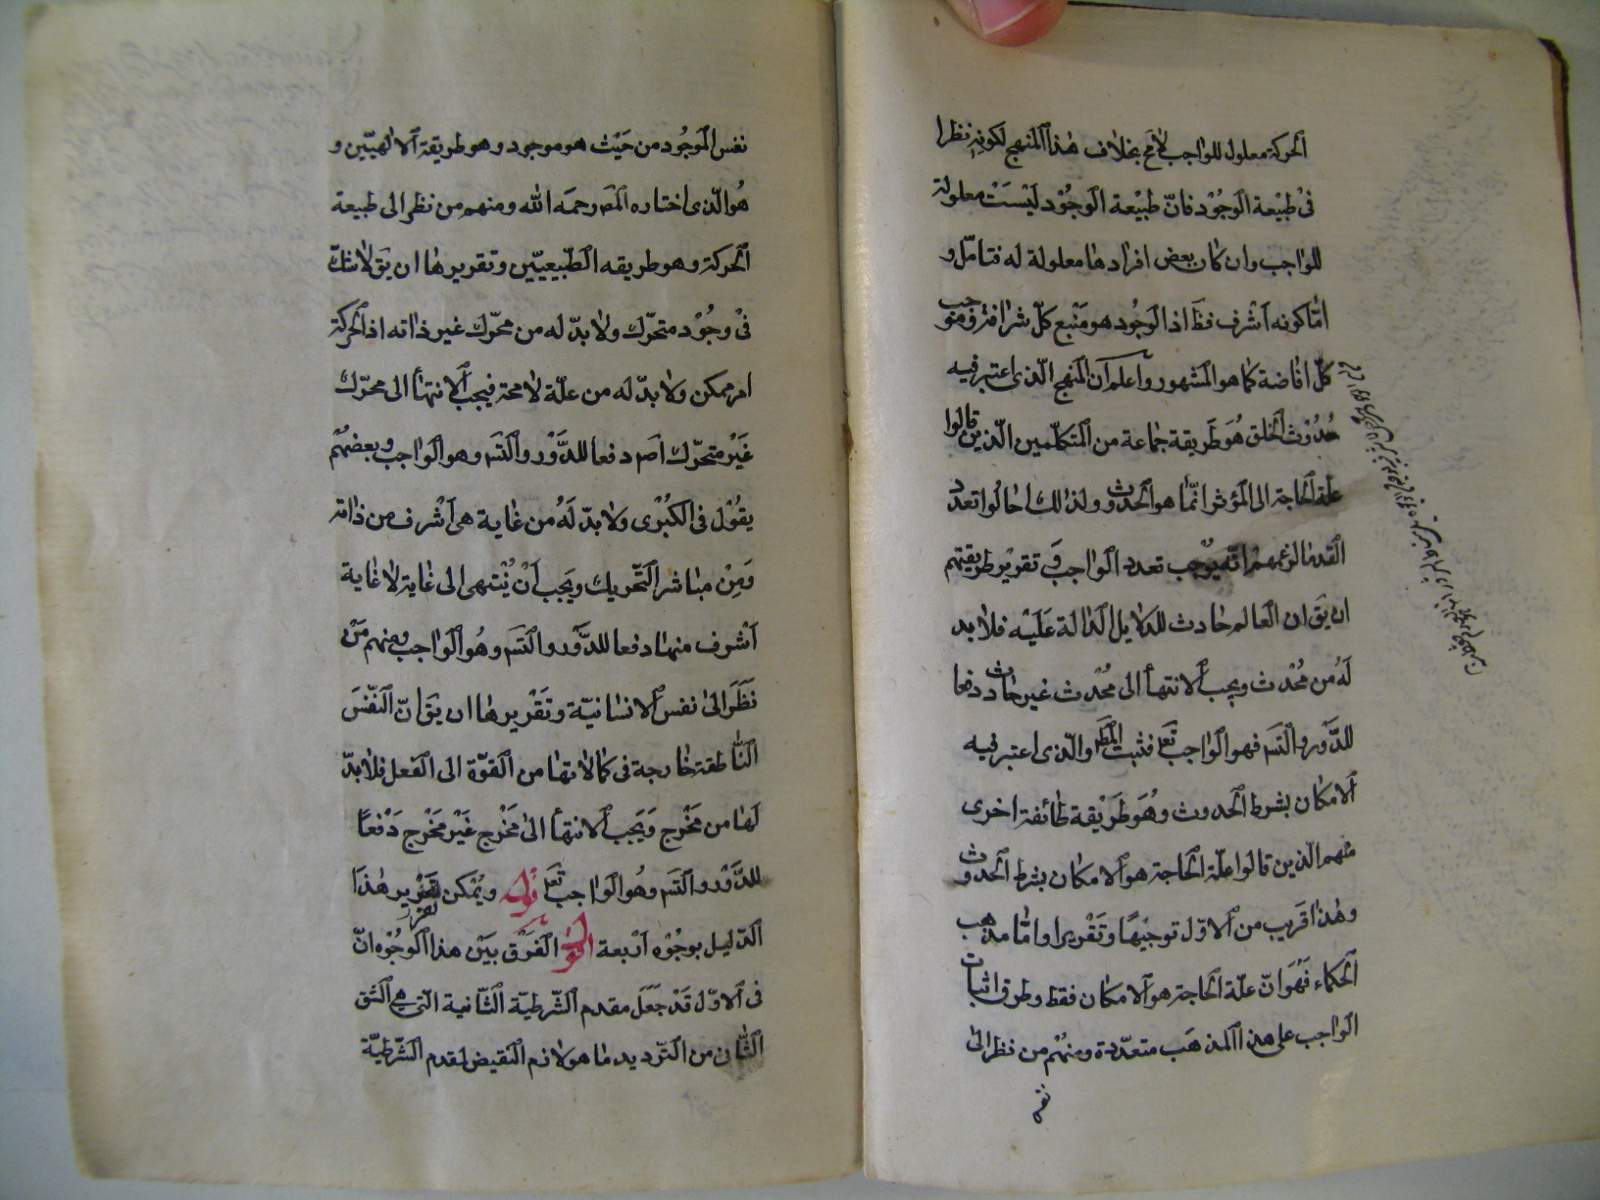 الحركة معلول للواجب لامح بخلاف هذا المنهج لكونه نظرا
فى طبيعة الوجود فان طبيعة الوجود ليست معلولة
للواجب وان كان بعض افرادها معلولة له فتامل و
اما كونه اشرف فظ اذ الوجود هو منبع كل شرافة وموجب
كل افاضة كما هو المشهور واعلم ان المنهج الذى اعتبر فيه
حدوث الخلق هو طريقة جماعة من المتكلمين الذين قالوا
علة الحاجة الى المؤثر انما هو الحدوث ولذلك احالوا تعدد
القدما لزعمهم انه يوجب تعدد الواجب و تقرير طريقتهم
ان يق ان العالم حادث للدلايل الدالة عليه فلا بد
له من محدث ويجب الانتهأ الى محدث غير حادث دفعا
للدور والتس فهو الواجب تع فثبت المط والذى اعتبر فيه
الامكان بشرط الحدوث وهو طريقة طائفة اخرى
منهم الذين قالوا علة الحاجة هو الامكان بشرط الحدوث
وهذا قريب من الاول توجيها وتقريرا واما مذهب
الحكماء فهو ان علة الحاجة هو الامكان فقط وطرق اثبات
الواجب على هذا المذهب متعددة ومنهم من نظر الى
نفس
نفس الموجود من حيث هو موجود وهو طريقة الالهيين و
هو الذى اختاره المص رحمه الله ومنهم من نظر الى طبيعة
الحركة وهو طريقه الطبيعيين وتقريرها ان يق لا شك
فى وجود متحرك ولا بد له من محرك غير ذاته اذ الحركة
امر ممكن ولا بد له من علة لا محة فيجب الانتهأ الى محرك
غير متحرك اصم دفعا للدور والتس وهو الواجب وبعضهم
يقول فى الكبرى ولا بد له من غاية هى اشرف من ذاته
ومن مباشر التحريك ويجب ان ينتهى الى غاية لا غاية
اشرف منها دفعا للدور والتس وهو الواجب ومنهم من
نظر الى نفس الانسانية وتقريرها ان يق ان النفس
الناطقة خارجة فى كمالاتها من القوة الى الفعل فلا بد
لها من مخرج ويجب الانتهأ الى مخرج غير مخرج دفعا
للدور والتس وهو الواجب تع قوله ويمكن تقرير هذا
الدليل بوجوه اربعة اقول الفرق بين هذا الوجوه ان
فى الاول قد جعل مقدم الشرطية الثانية التى هي الشق
الثان من الترديد ما هو لازم النقيض لمقدم الشرطية